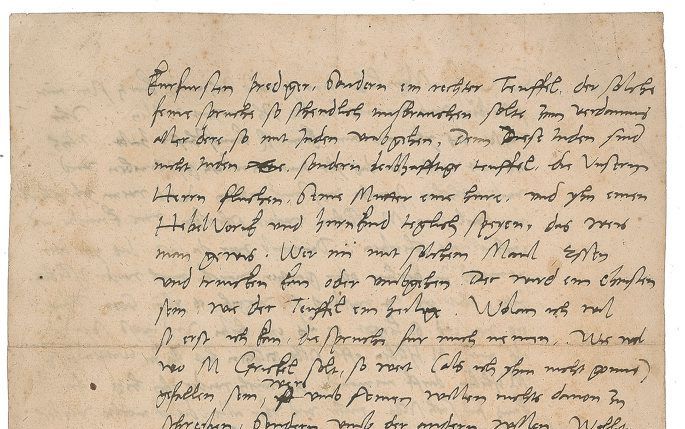 kurfursten prediger, sondern ein rechter Teuffel, der solche
feine spruche so schendlich misbrauchen solte zum verdamnis
aller dere, so mit Juden umbgehen, Denn Diese Juden sind
nicht Juden, sondern leibhafftige teuffel, die unserm
Herrn fluchen, seine Mutter eine hure, und yhn einen
Hebel Vorik und hurnkind teglich speyen, das weis
man gewis. Wer nu mit solchem Maul Essen
und trincken kan oder umbgehen, Der wird ein Christen
sein, wie der Teuffel ein heilige. Wolan ich wil
so erst ich kan, die spruche fur mich nemen. Wie wol
wo M Grickel solt, so weit (als ich yhm nicht gonne)
gefallen sein, wers umb seinen willen nichts davon zu
schreiben, sondern umb der andern willen. Wolt